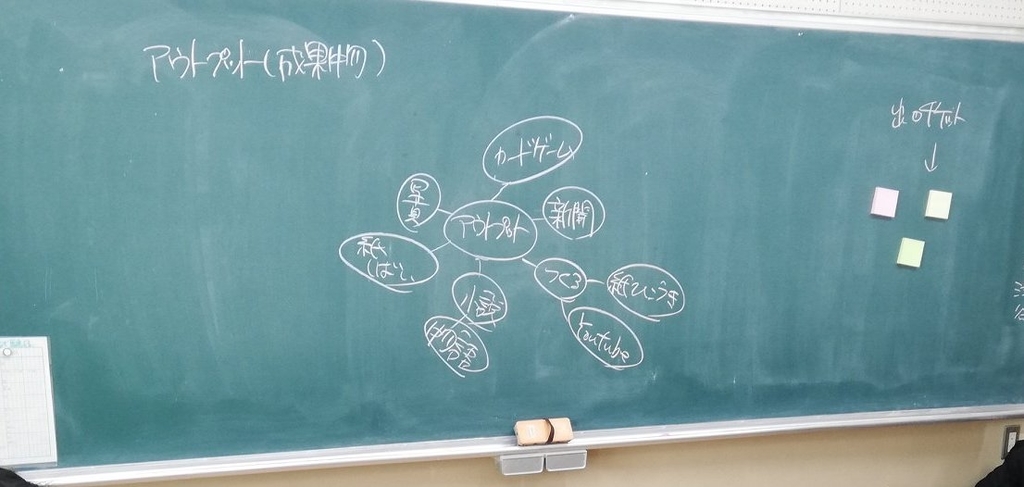 アウトプット(成果物)
出口チケット
↓
カードゲーム
写真
アウトプット
新聞
紙
しばい
つくる
紙ひこうき
小説
物語
Youtube